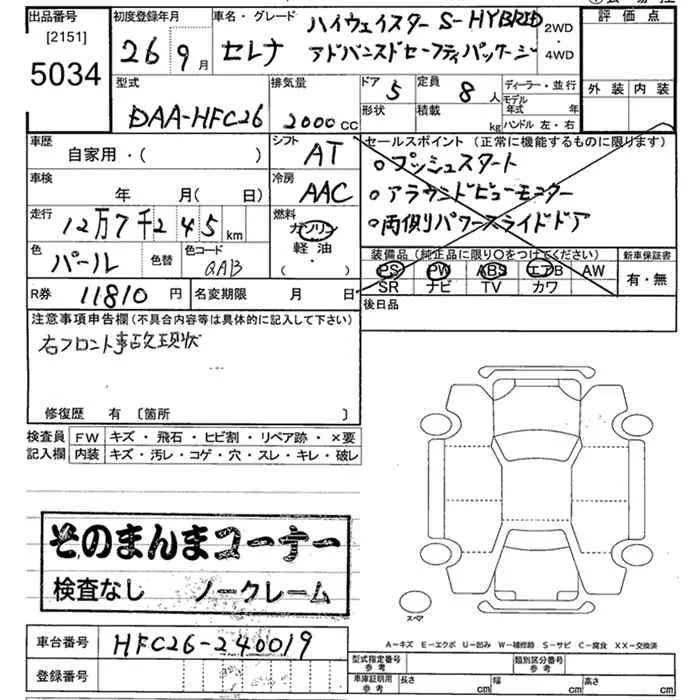 出品番号 初度登録年月 車名・グレード ハイウェイスター S-HYBRID 2WD・4WD 評価点
[2151] 26 9月 セレナ アドバンスドセーフティパッケージ
5034
型式 排気量 ドア 5 定員 8人 ディーラー・並行 外装 内装
DAA-HFC26 2000cc 形状 積載 kg モデル年式 年
ハンドル 左・右
車歴 自家用・( ) シフト AT セールスポイント(正常に機能するものに限ります)
○プッシュスタート
車検 年 月(日) 冷房 AAC ○アラウンドビューモニター
走行 12万7千245km 燃料 ガソリン ○両側パワースライドドア
軽油
( ・ )
色 パール 色替 色コード QAB 装備品(純正品に限り○をつけてください) 新車保証書
PS PW ABS エアB AW 有・無
SR ナビ TV カワ
R券 11810円 名変期限 月 日 後日品
注意事項申告欄(不具合内容等は具体的に記入して下さい)
右フロント事故現状
修復歴 有 〔箇所 〕
検査員 FW キズ・飛石・ヒビ割・リペア跡・×要
記入欄 内装 キズ・汚レ・コゲ・穴・スレ・キレ・破レ
そのまんまコーナー
検査なし ノークレーム
スペア
車台番号 HFC26-240019
A-キズ E-エクボ U-凹み W-補修跡 S-サビ C-腐食 XX-交換済
登録番号
型式指定番号 参考 類別区分番号 参考
車庫証明用 参考 長さ cm 幅 cm 高さ cm